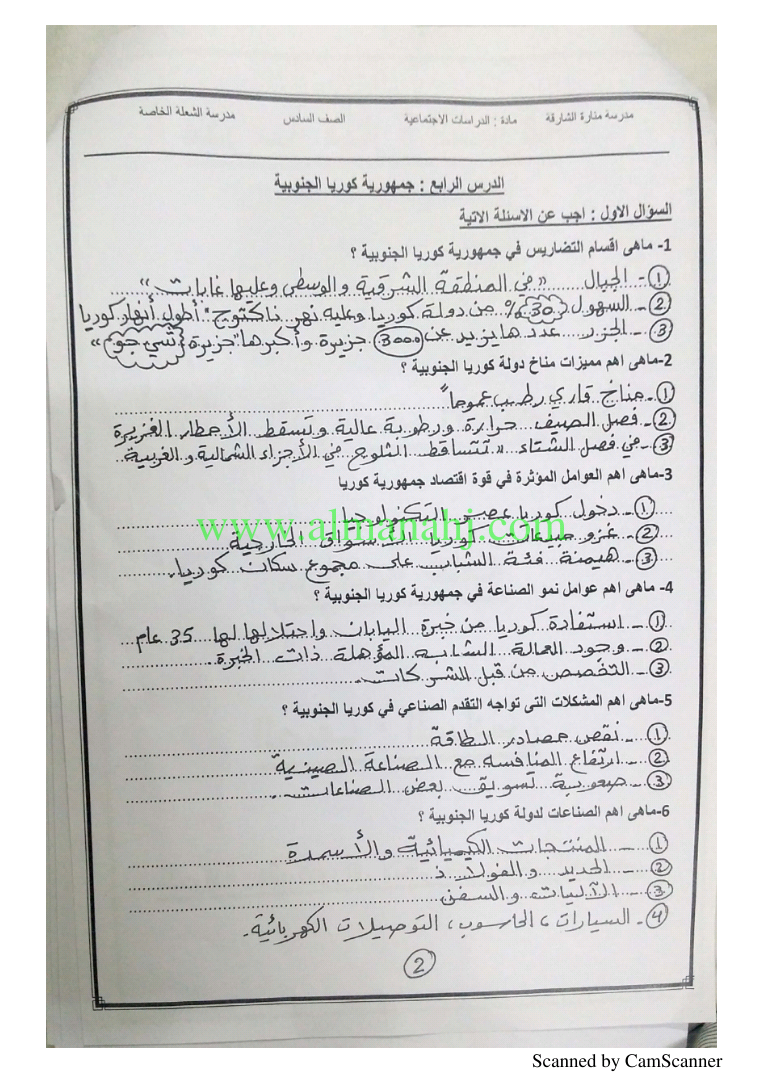 مدرسة منارة الشارقة مادة : الدراسات الاجتماعية الصف السادس مدرسة الشعلة الخاصة
الدرس الرابع : جمهورية كوريا الجنوبية
السؤال الاول : اجب عن الاسئلة الاتية
1- ماهى اقسام التضاريس في جمهورية كوريا الجنوبية ؟
1- الجبال " في المنطقة الشرقية والوسطى وعليها غابات "
2- السهول 30% من دولة كوريا وعليه نهر ناكتونج " أطول أنهار كوريا
3- الجزر عددها يزيد عن 3000 جزيرة وأكبرها "جزيرة شي جو "
2-ماهى اهم مميزات مناخ دولة كوريا الجنوبية ؟
1- مناخ قاري رطب عموماً "
2- فصل الصيف حرارة ورطوبة عالية وتسقط الأمطار الغزيرة
3- في فصل الشتاء " تتساقط الثلوج في الأجزاء الشمالية والغربية
3-ماهى اهم العوامل المؤثرة في قوة اقتصاد جمهورية كوريا
1- دخول كوريا عصر التكنولوجيا
www.almanahj.com
2- غزو مبيعات كوريا الأسواق الخارجية
3- هيمنة فئة الشباب على مجموع سكان كوريا.
4- ماهى اهم عوامل نمو الصناعة في جمهورية كوريا الجنوبية ؟
1- استفادة كوريا من خبرة اليابان واحتلالها لها 35 عام
2- وجود العمالة الشابه المؤهلة ذات الخبرة.
3- التخصص من قبل الشركات.
5-ماهى اهم المشكلات التى تواجه التقدم الصناعي في كوريا الجنوبية ؟
1- نقص مصادر الطاقة
2- ارتفاع المنافسه مع الصناعة الصينية
3- صعوبة تسويق بعض الصناعات.
6-ماهى اهم الصناعات لدولة كوريا الجنوبية ؟
1- المنتجات الكيميائية والأسمدة
2- الحديد والفولاذ
3- الآليات والسفن
4- السيارات ، الحاسوب ، التوصيلات الكهربائية.
2
Scanned by CamScanner